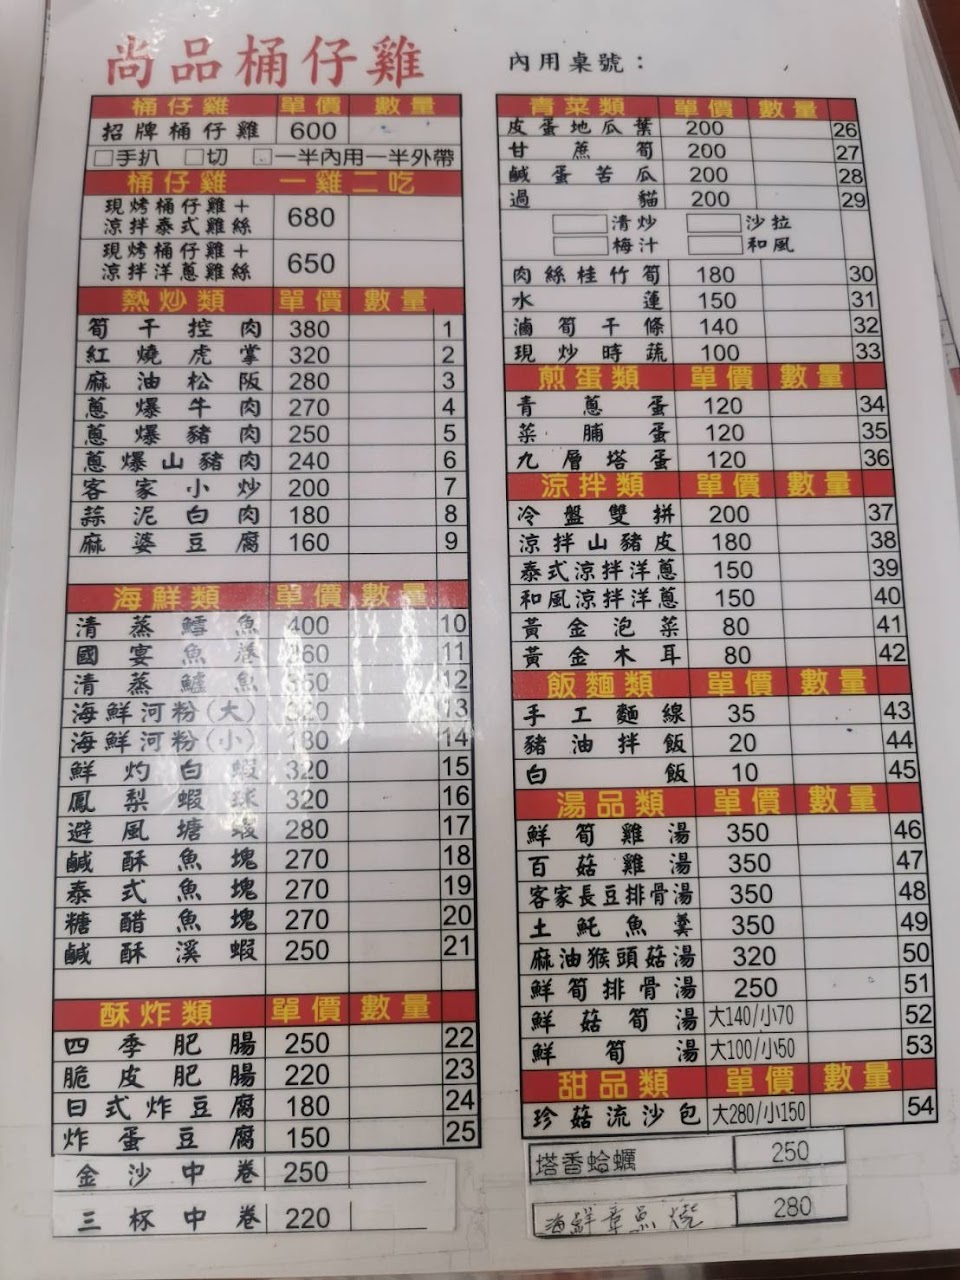 尚品桶仔雞
內用桌號：
桶仔雞 單價 數量
招牌桶仔雞 600
□手扒 □切 □一半內用一半外帶
桶仔雞 一雞二吃
現烤桶仔雞＋
涼拌泰式雞絲 680
現烤桶仔雞＋
涼拌洋蔥雞絲 650
熱炒類 單價 數量
筍干控肉 380 1
紅燒虎掌 320 2
麻油松阪 280 3
蔥爆牛肉 270 4
蔥爆豬肉 250 5
蔥爆山豬肉 240 6
客家小炒 200 7
蒜泥白肉 180 8
麻婆豆腐 160 9
海鮮類 單價 數量
清蒸鱈魚 400 10
國宴魚卷 360 11
清蒸鱸魚 350 12
海鮮河粉(大) 13
海鮮河粉(小) 180 14
鮮灼白蝦 320 15
鳳梨蝦球 320 16
避風塘蝦 280 17
鹹酥魚塊 270 18
泰式魚塊 270 19
糖醋魚塊 270 20
鹹酥溪蝦 250 21
酥炸類 單價 數量
四季肥腸 250 22
脆皮肥腸 220 23
日式炸豆腐 180 24
炸蛋豆腐 150 25
金沙中卷 250
三杯中卷 220
青菜類 單價 數量
皮蛋地瓜葉 200 26
甘蔗筍 200 27
鹹蛋苦瓜 200 28
過貓 200 29
清炒 沙拉
梅汁 和風
肉絲桂竹筍 180 30
水蓮 150 31
滷筍干條 140 32
現炒時蔬 100 33
煎蛋類 單價 數量
青蔥蛋 120 34
菜脯蛋 120 35
九層塔蛋 120 36
涼拌類 單價 數量
冷盤雙拼 200 37
涼拌山豬皮 180 38
泰式涼拌洋蔥 150 39
和風涼拌洋蔥 150 40
黃金泡菜 80 41
黃金木耳 80 42
飯麵類 單價 數量
手工麵線 35 43
豬油拌飯 20 44
白飯 10 45
湯品類 單價 數量
鮮筍雞湯 350 46
百菇雞湯 350 47
客家長豆排骨湯 350 48
土魠魚羹 350 49
麻油猴頭菇湯 320 50
鮮筍排骨湯 250 51
鮮菇筍湯 大140/小70 52
鮮筍湯 大100/小50 53
甜品類 單價 數量
珍菇流沙包 大280/小150 54
塔香蛤蠣 250
海鮮章魚燒 280